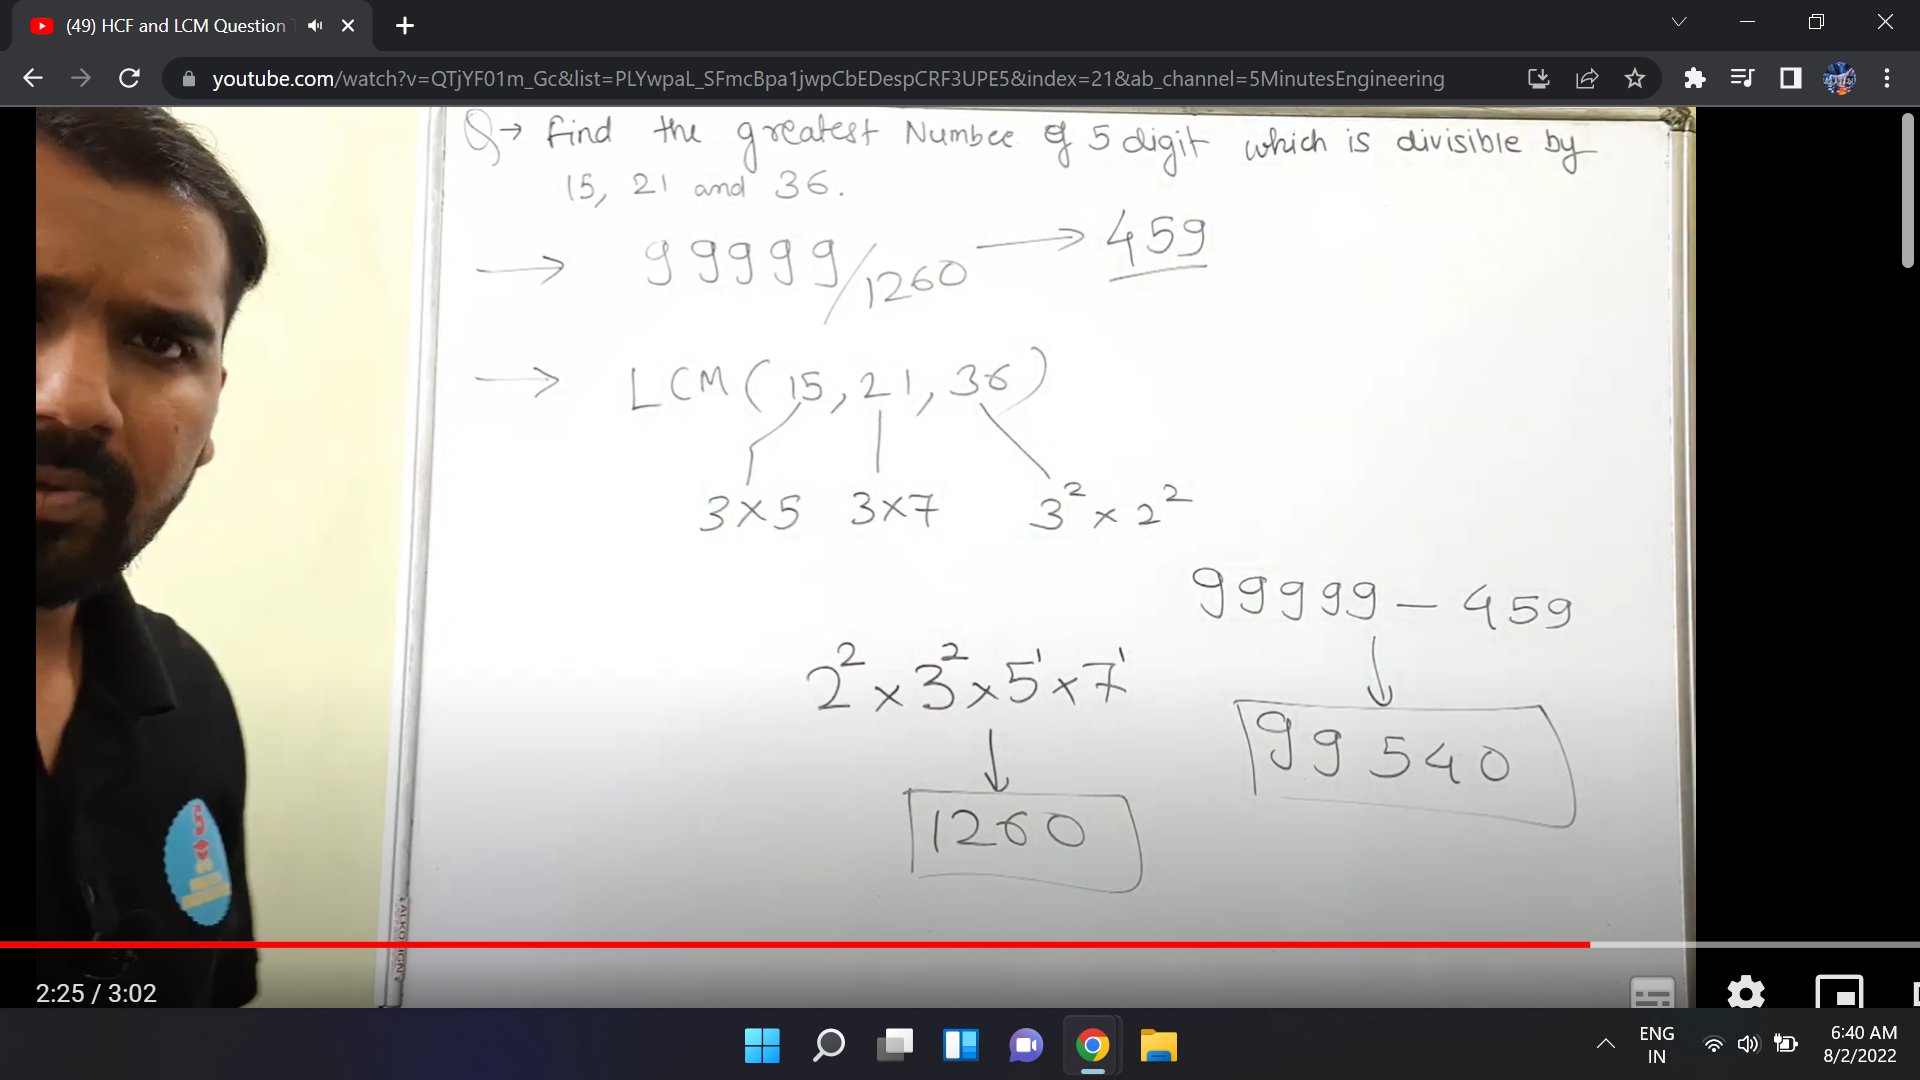 (49) HCF and LCM Question
youtube.com/watch?v=QTjYF01m_Gc&list=PLYwpaL_SFmcBpa1jwpCbEDespCRF3UPE5&index=21&ab_channel=5MinutesEngineering
Q → Find the greatest Number of 5 digit which is divisible by
15, 21 and 36.
→ 99999/1260 → 459
→ LCM(15, 21, 36)
3×5 3×7 3²×2²
99999 - 459
2²×3²×5¹×7¹
99540
1260
5
2:25 / 3:02
ENG
IN
6:40 AM
8/2/2022